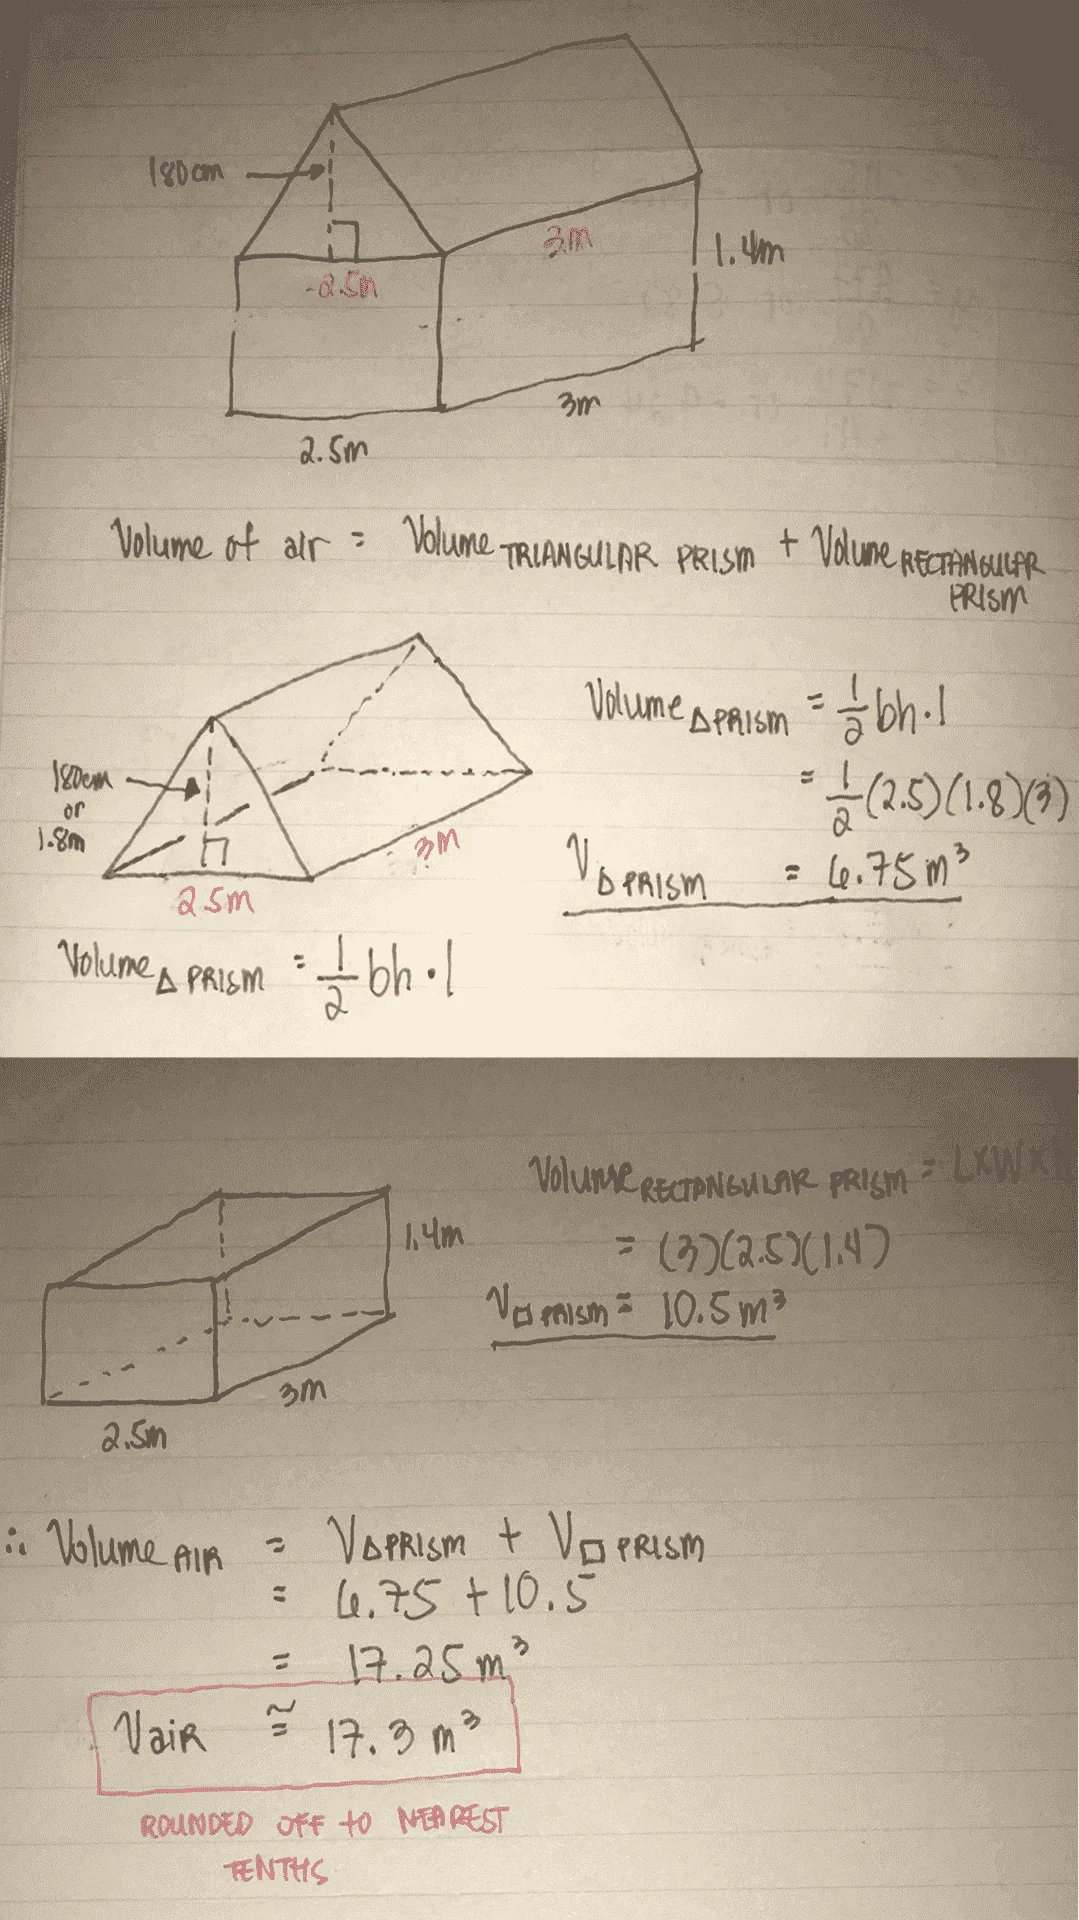 180cm
3m
1.4m
2.5m
3m
2.5m
Volume of air = Volume TRIANGULAR PRISM + Volume RECTANGULAR PRISM
180cm
or
1.8m
3m
2.5m
Volume △ PRISM = 1/2 bh·l
Volume △ PRISM = 1/2 bh·l
= 1/2 (2.5)(1.8)(3)
V △ PRISM = 6.75 m³
1.4m
3m
2.5m
Volume RECTANGULAR PRISM = LXWX
= (3)(2.5)(1.4)
V □ PRISM = 10.5 m³
∴ Volume AIR = V △ PRISM + V □ PRISM
= 6.75 + 10.5
= 17.25 m³
Vair ≅ 17.3 m³
ROUNDED OFF to NEAREST
TENTHS